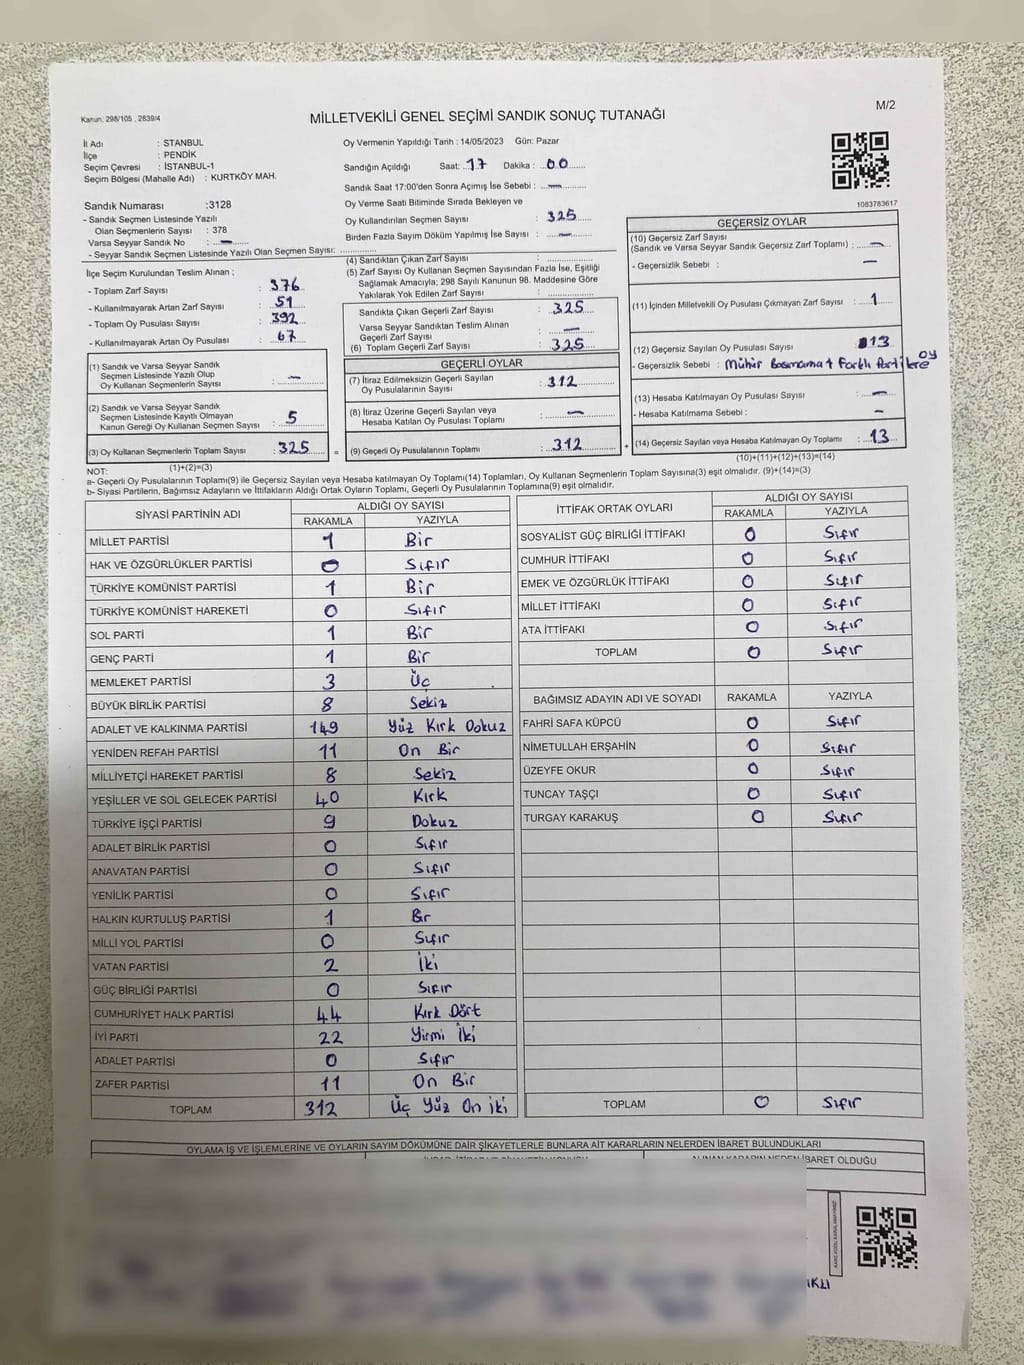 Kanun: 298/105 , 2839/4
MİLLETVEKİLİ GENEL SEÇİMİ SANDIK SONUÇ TUTANAĞI
M/2
İl Adı : STANBUL
İlçe : PENDİK
Seçim Çevresi : İSTANBUL-1
Seçim Bölgesi (Mahalle Adı) : KURTKÖY MAH.
Sandık Numarası :3128
- Sandık Seçmen Listesinde Yazılı
Olan Seçmenlerin Sayısı : 378
Varsa Seyyar Sandık No : —
- Seyyar Sandık Seçmen Listesinde Yazılı Olan Seçmen Sayısı:
Oy Vermenin Yapıldığı Tarih : 14/05/2023 Gün: Pazar
Sandığın Açıldığı Saat: 17 Dakika : 00
Sandık Saat 17:00'den Sonra Açımış İse Sebebi : —
Oy Verme Saati Bitiminde Sırada Bekleyen ve
Oy Kullandırılan Seçmen Sayısı : 325
Birden Fazla Sayım Döküm Yapılmış İse Sayısı : —
1083783617
İlçe Seçim Kurulundan Teslim Alınan ;
- Toplam Zarf Sayısı : 376
- Kullanılmayarak Artan Zarf Sayısı : 51
- Toplam Oy Pusulası Sayısı : 392
- Kullanılmayarak Artan Oy Pusulası : 67
(1) Sandık ve Varsa Seyyar Sandık
Seçmen Listesinde Yazılı Olup
Oy Kullanan Seçmenlerin Sayısı : —
(2) Sandık ve Varsa Seyyar Sandık
Seçmen Listesinde Kayıtlı Olmayan
Kanun Gereği Oy Kullanan Seçmen Sayısı : 5
(3) Oy Kullanan Seçmenlerin Toplam Sayısı : 325
(1)+(2)=(3)
(4) Sandıktan Çıkan Zarf Sayısı :
(5) Zarf Sayısı Oy Kullanan Seçmen Sayısından Fazla İse, Eşitliği
Sağlamak Amacıyla; 298 Sayılı Kanunun 98. Maddesine Göre
Yakılarak Yok Edilen Zarf Sayısı :
Sandıkta Çıkan Geçerli Zarf Sayısı : 325
Varsa Seyyar Sandıktan Teslim Alınan
Geçerli Zarf Sayısı : —
(6) Toplam Geçerli Zarf Sayısı : 325
GEÇERLİ OYLAR
(7) İtiraz Edilmeksizin Geçerli Sayılan
Oy Pusulalarının Sayısı : 312
(8) İtiraz Üzerine Geçerli Sayılan veya
Hesaba Katılan Oy Pusulası Toplamı : —
= (9) Geçerli Oy Pusulalarının Toplamı : 312 +
GEÇERSİZ OYLAR
(10) Geçersiz Zarf Sayısı
(Sandık ve Varsa Seyyar Sandık Geçersiz Zarf Toplamı) : —
- Geçersizlik Sebebi : —
(11) İçinden Milletvekili Oy Pusulası Çıkmayan Zarf Sayısı : 1
(12) Geçersiz Sayılan Oy Pusulası Sayısı : 13
- Geçersizlik Sebebi : Mühür Basmama + Farklı Partilere oy
(13) Hesaba Katılmayan Oy Pusulası Sayısı : —
- Hesaba Katılmama Sebebi : —
(14) Geçersiz Sayılan veya Hesaba Katılmayan Oy Toplamı : 13
(10)+(11)+(12)+(13)=(14)
NOT:
a- Geçerli Oy Pusulalarının Toplamı(9) ile Geçersiz Sayılan veya Hesaba katılmayan Oy Toplamı(14) Toplamları, Oy Kullanan Seçmenlerin Toplam Sayısına(3) eşit olmalıdır. (9)+(14)=(3)
b- Siyasi Partilerin, Bağımsız Adayların ve İttifakların Aldığı Ortak Oyların Toplamı, Geçerli Oy Pusulalarının Toplamına(9) eşit olmalıdır.
SİYASİ PARTİNİN ADI ALDIĞI OY SAYISI
RAKAMLA YAZIYLA
MİLLET PARTİSİ 1 Bir
HAK VE ÖZGÜRLÜKLER PARTİSİ 0 Sıfır
TÜRKİYE KOMÜNİST PARTİSİ 1 Bir
TÜRKİYE KOMÜNİST HAREKETİ 0 Sıfır
SOL PARTİ 1 Bir
GENÇ PARTİ 1 Bir
MEMLEKET PARTİSİ 3 Üç
BÜYÜK BİRLİK PARTİSİ 8 Sekiz
ADALET VE KALKINMA PARTİSİ 149 Yüz Kırk Dokuz
YENİDEN REFAH PARTİSİ 11 On Bir
MİLLİYETÇİ HAREKET PARTİSİ 8 Sekiz
YEŞİLLER VE SOL GELECEK PARTİSİ 40 Kırk
TÜRKİYE İŞÇİ PARTİSİ 9 Dokuz
ADALET BİRLİK PARTİSİ 0 Sıfır
ANAVATAN PARTİSİ 0 Sıfır
YENİLİK PARTİSİ 0 Sıfır
HALKIN KURTULUŞ PARTİSİ 1 Bir
MİLLİ YOL PARTİSİ 0 Sıfır
VATAN PARTİSİ 2 İki
GÜÇ BİRLİĞİ PARTİSİ 0 Sıfır
CUMHURİYET HALK PARTİSİ 44 Kırk Dört
İYİ PARTİ 22 Yirmi İki
ADALET PARTİSİ 0 Sıfır
ZAFER PARTİSİ 11 On Bir
TOPLAM 312 Üç Yüz On iki
İTTİFAK ORTAK OYLARI ALDIĞI OY SAYISI
RAKAMLA YAZIYLA
SOSYALİST GÜÇ BİRLİĞİ İTTİFAKI 0 Sıfır
CUMHUR İTTİFAKI 0 Sıfır
EMEK VE ÖZGÜRLÜK İTTİFAKI 0 Sıfır
MİLLET İTTİFAKI 0 Sıfır
ATA İTTİFAKI 0 Sıfır
TOPLAM 0 Sıfır
BAĞIMSIZ ADAYIN ADI VE SOYADI RAKAMLA YAZIYLA
FAHRİ SAFA KÜPCÜ 0 Sıfır
NİMETULLAH ERŞAHİN 0 Sıfır
ÜZEYFE OKUR 0 Sıfır
TUNCAY TAŞÇI 0 Sıfır
TURGAY KARAKUŞ 0 Sıfır
TOPLAM 0 Sıfır
OYLAMA İŞ VE İŞLEMLERİNE VE OYLARIN SAYIM DÖKÜMÜNE DAİR ŞİKAYETLERLE BUNLARA AİT KARARLARIN NELERDEN İBARET BULUNDUKLARI
ALINAN KARARIN NEDEN İBARET OLDUĞU